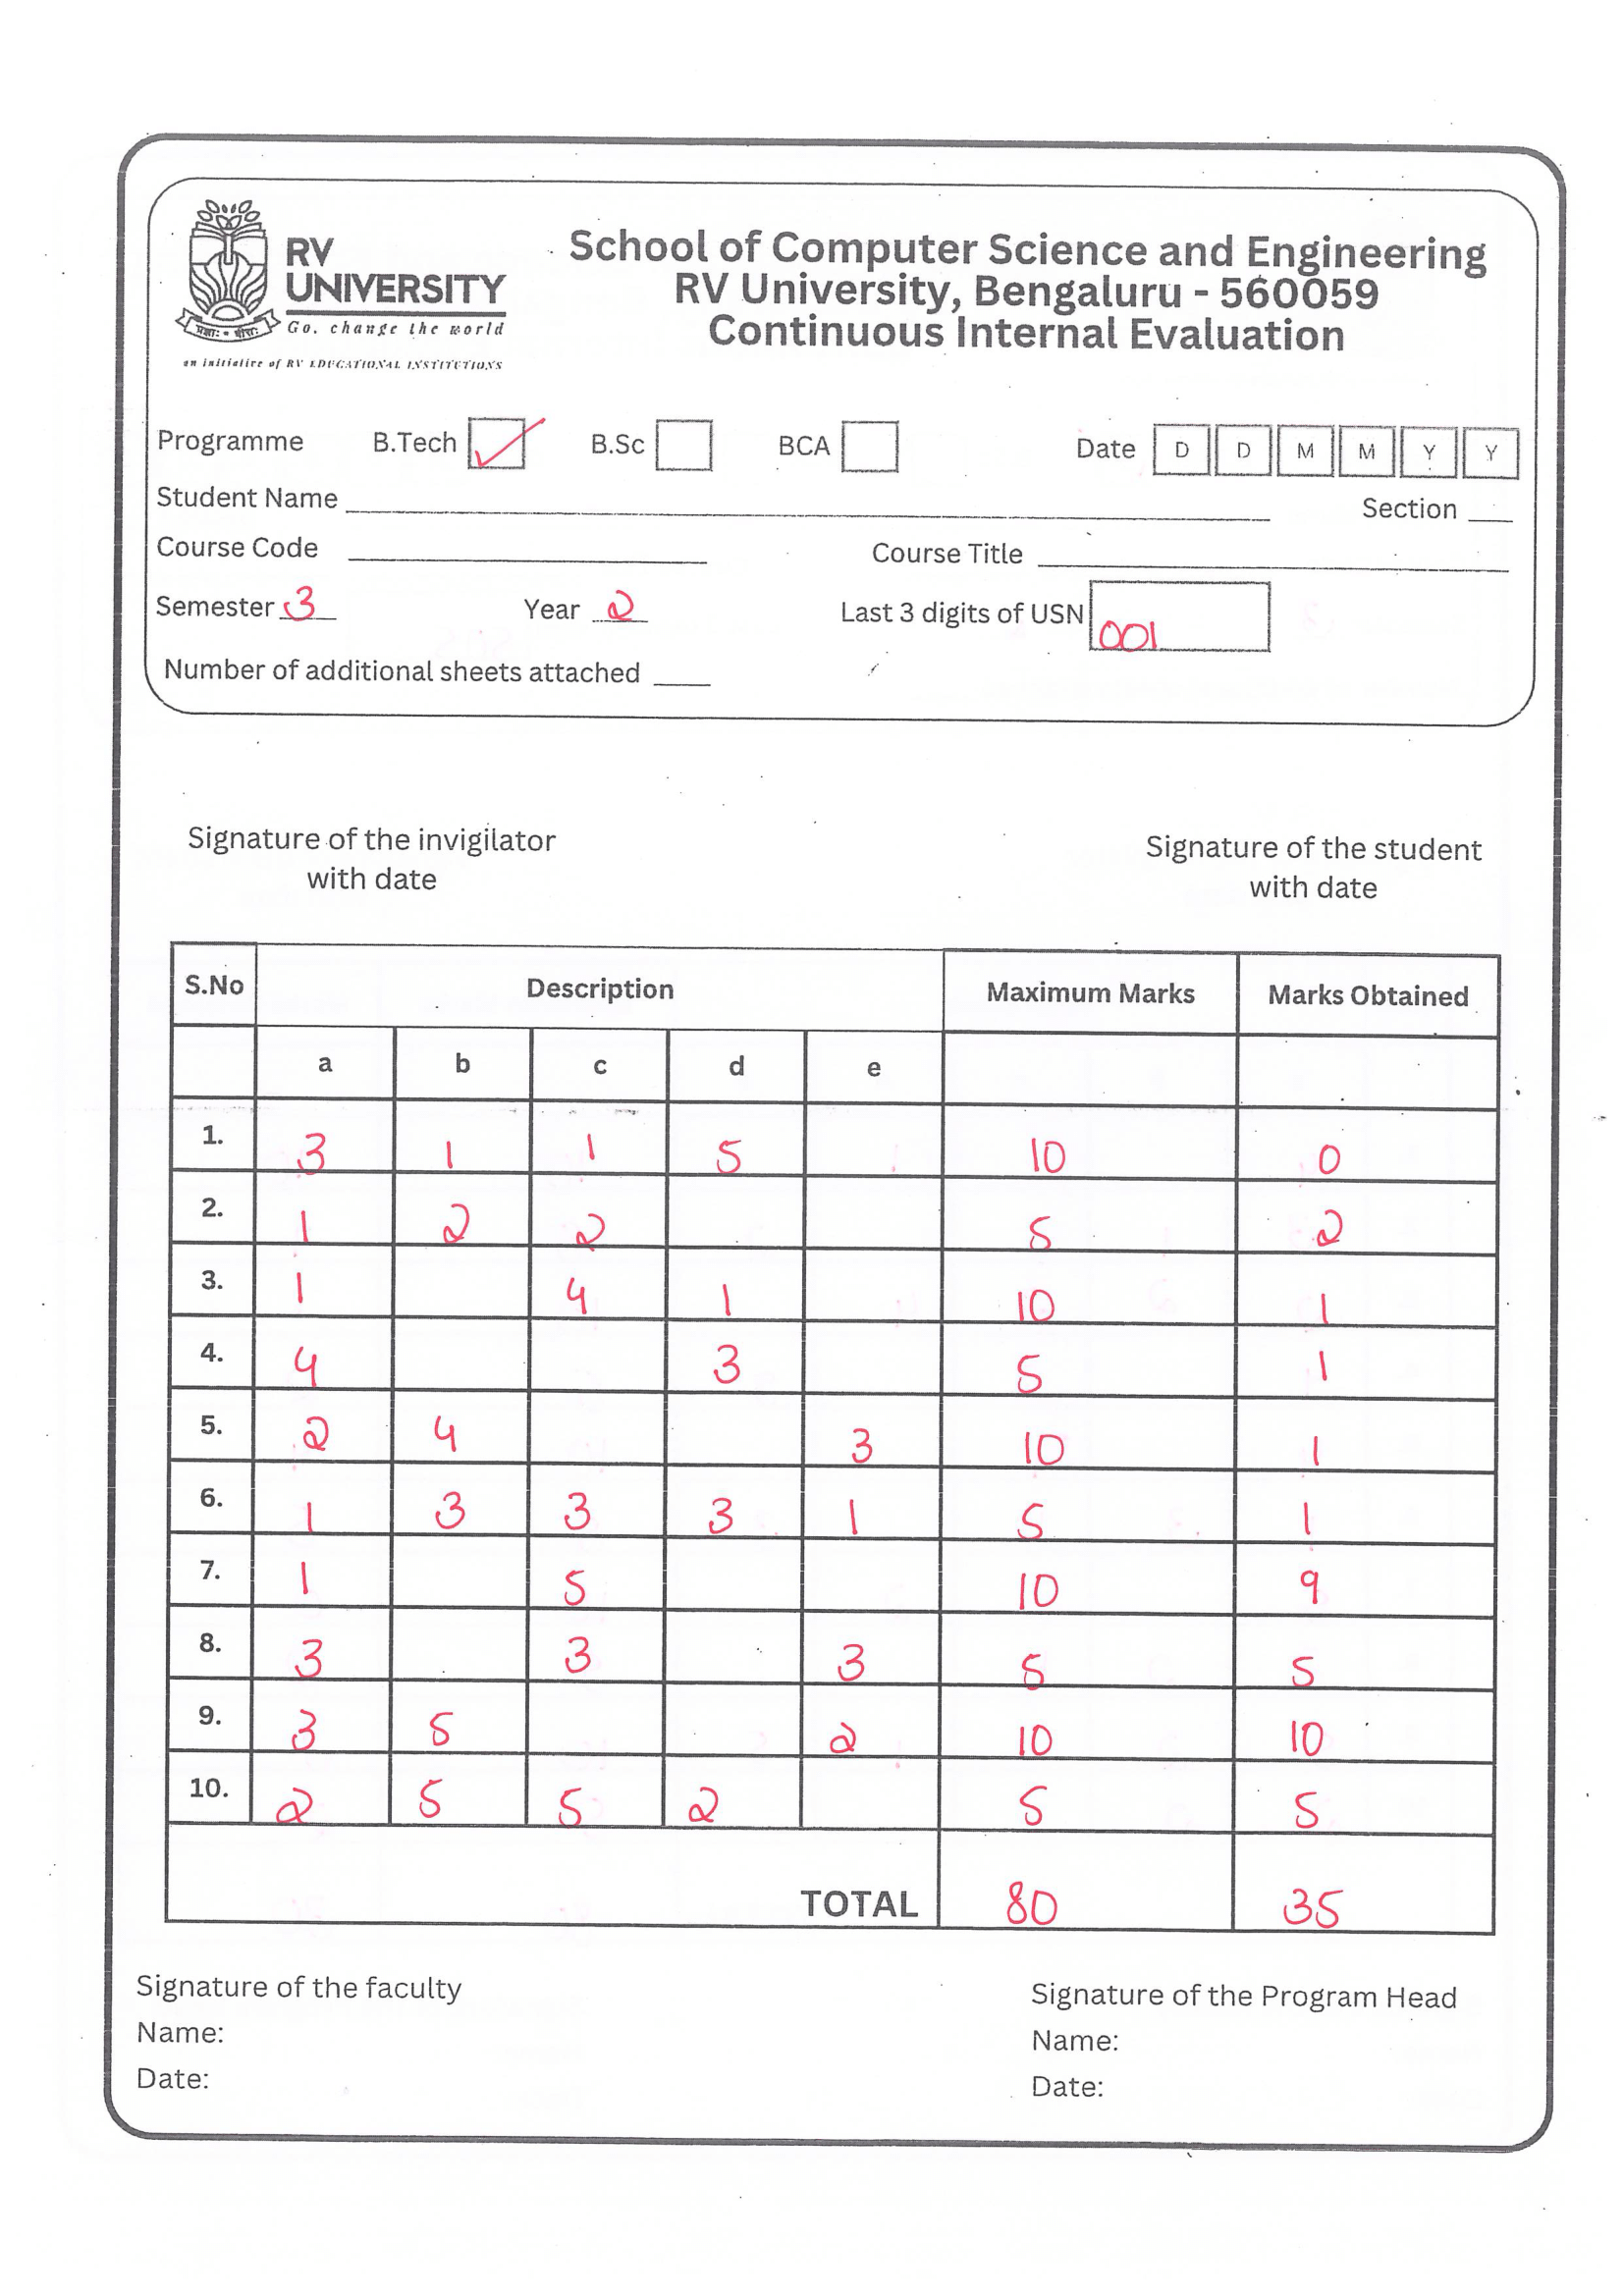 RV
UNIVERSITY
Go, change the world
an initiative of RV EDUCATIONAL INSTITUTIONS
School of Computer Science and Engineering
RV University, Bengaluru - 560059
Continuous Internal Evaluation
Programme B.Tech B.Sc BCA Date D D M M Y Y
Student Name Section
Course Code Course Title
Semester 3 Year 2 Last 3 digits of USN 001
Number of additional sheets attached
Signature of the invigilator
with date
Signature of the student
with date
S.No Description Maximum Marks Marks Obtained
a b c d e
1. 3 1 1 5 10 0
2. 1 2 2 5 2
3. 1 4 1 10 1
4. 4 3 5 1
5. 2 4 3 10 1
6. 1 3 3 3 1 5 1
7. 1 5 10 9
8. 3 3 3 5 5
9. 3 5 2 10 10
10. 2 5 5 2 5 5
TOTAL 80 35
Signature of the faculty
Name:
Date:
Signature of the Program Head
Name:
Date: